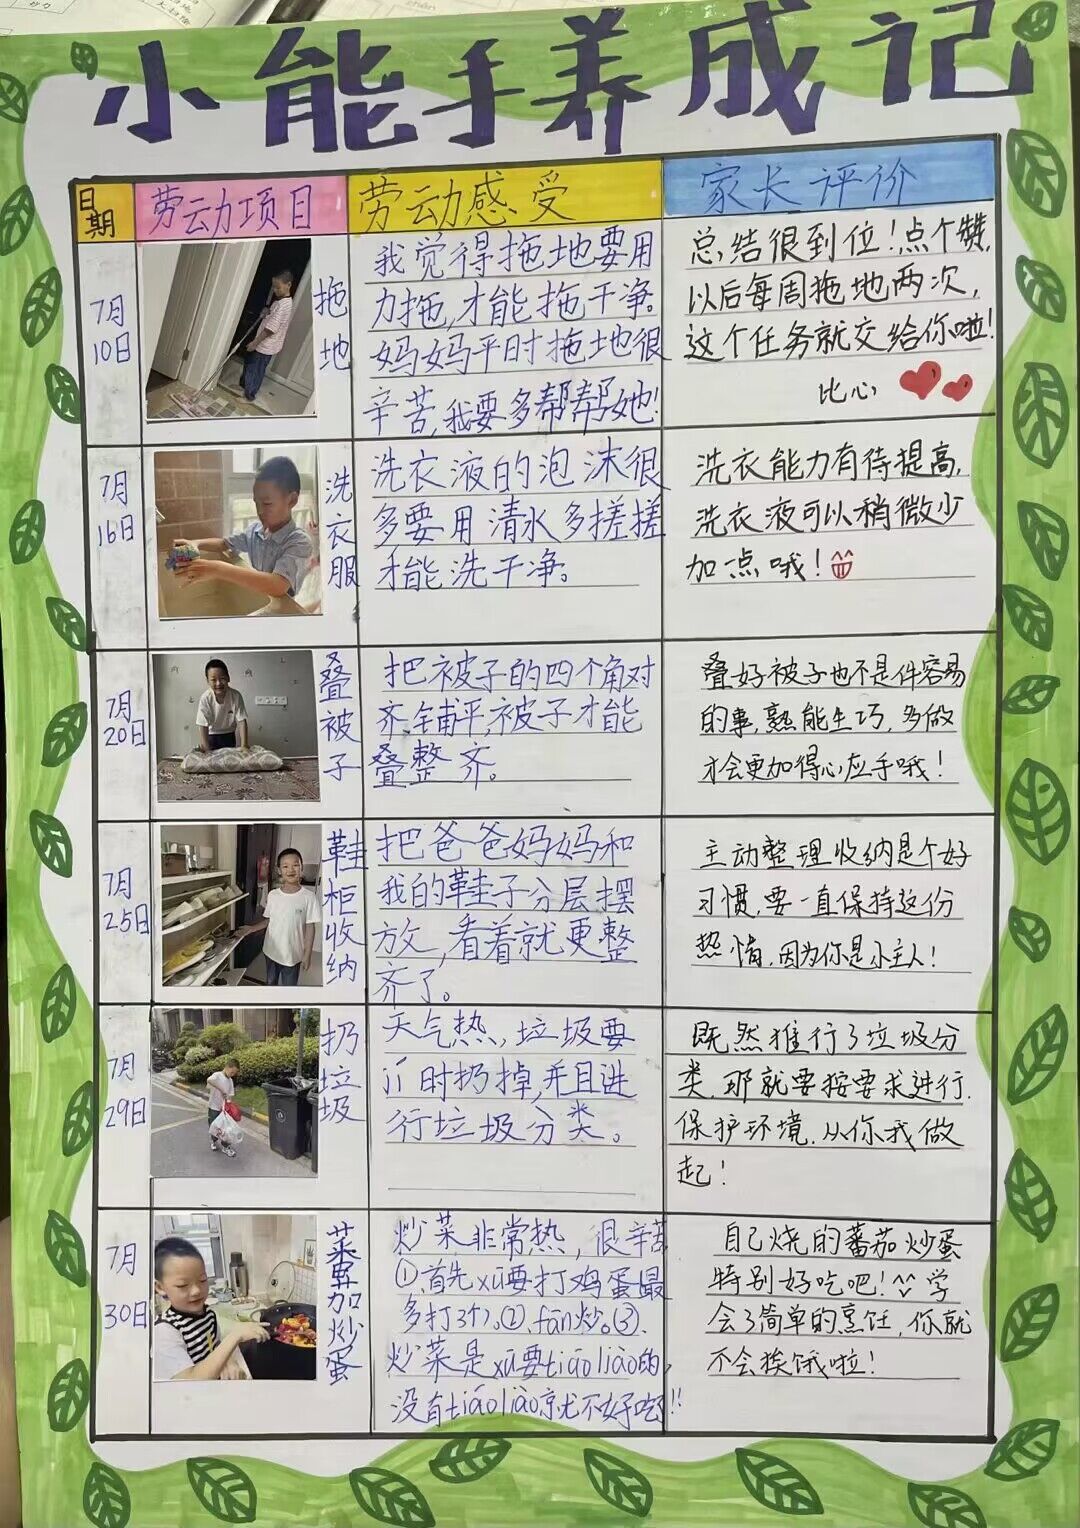 小能手养成记
日期
劳动项目
劳动感受
家长评价
7月
10日
拖地
我觉得拖地要用
力拖,才能拖干净。
妈妈平时拖地很
辛苦,我要多帮帮她!
总结很到位!点个赞,
以后每周拖地两次,
这个任务就交给你啦!
比心
7月
16日
洗衣服
洗衣液的泡沫很
多要用清水多搓搓
才能洗干净。
洗衣能力有待提高,
洗衣液可以稍微少
加一点哦!
7月
20日
叠被子
把被子的四个角对
齐,铺平,被子才能
叠整齐。
叠好被子也不是件容易
的事,熟能生巧,多做
才会更加得心应手哦!
7月
25日
鞋柜收纳
把爸爸妈妈和
我的鞋子分层摆
放,看着就更整
齐了。
主动整理收纳是个好
习惯,要一直保持这份
热情,因为你是小主人!
7月
29日
扔垃圾
天气热,垃圾要
时扔掉,并且进
行垃圾分类。
既然推行了垃圾分
类,那就要按要求进行.
保护环境,从你我做
起!
7月
30日
加炒蛋
炒菜,非常热,很辛苦
①,首先xū要打鸡蛋最
多打3个。②,fān炒。③,
炒菜是xū要tiáo liào的,
没有tiáo liào就不好吃!!
自己烧的蕃茄炒蛋
特别好吃吧!^^学
会了简单的烹饪,你就
不会挨饿啦!